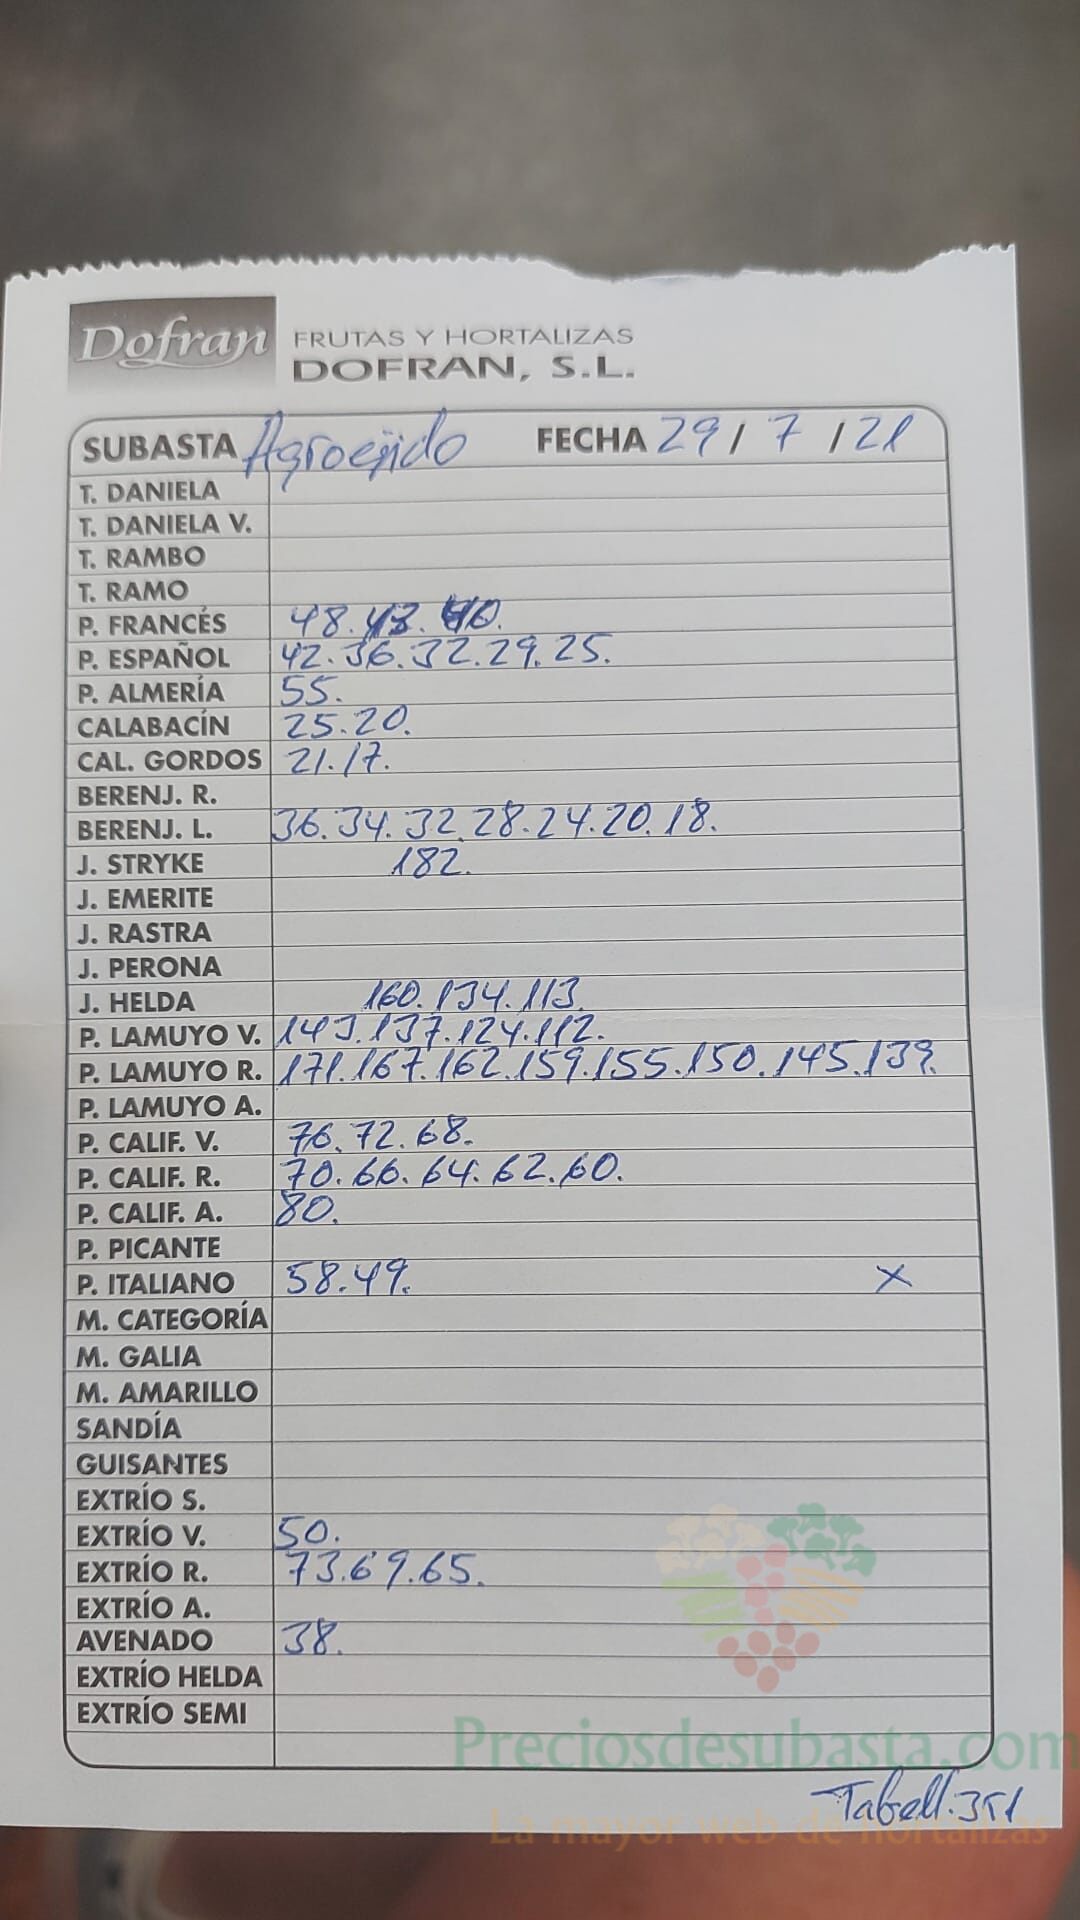 Dofran FRUTAS Y HORTALIZAS
DOFRAN, S.L.
SUBASTA Agroejido FECHA 29 / 7 / 21
T. DANIELA
T. DANIELA V.
T. RAMBO
T. RAMO
P. FRANCÉS 48. 43. 40.
P. ESPAÑOL 42. 36. 32. 29. 25.
P. ALMERÍA 55.
CALABACÍN 25. 20.
CAL. GORDOS 21. 17.
BERENJ. R.
BERENJ. L. 36. 34. 32. 28. 24. 20. 18.
J. STRYKE 182.
J. EMERITE
J. RASTRA
J. PERONA
J. HELDA 160. 134. 113.
P. LAMUYO V. 143. 137. 124. 112.
P. LAMUYO R. 171. 167. 162. 159. 155. 150. 145. 139.
P. LAMUYO A.
P. CALIF. V. 76. 72. 68.
P. CALIF. R. 70. 66. 64. 62. 60.
P. CALIF. A. 80.
P. PICANTE
P. ITALIANO 58. 49. X
M. CATEGORÍA
M. GALIA
M. AMARILLO
SANDÍA
GUISANTES
EXTRÍO S.
EXTRÍO V. 50.
EXTRÍO R. 73. 69. 65.
EXTRÍO A.
AVENADO 38.
EXTRÍO HELDA
EXTRÍO SEMI
Preciosdesubasta.com
Tabell. 351
La mayor web de hortalizas